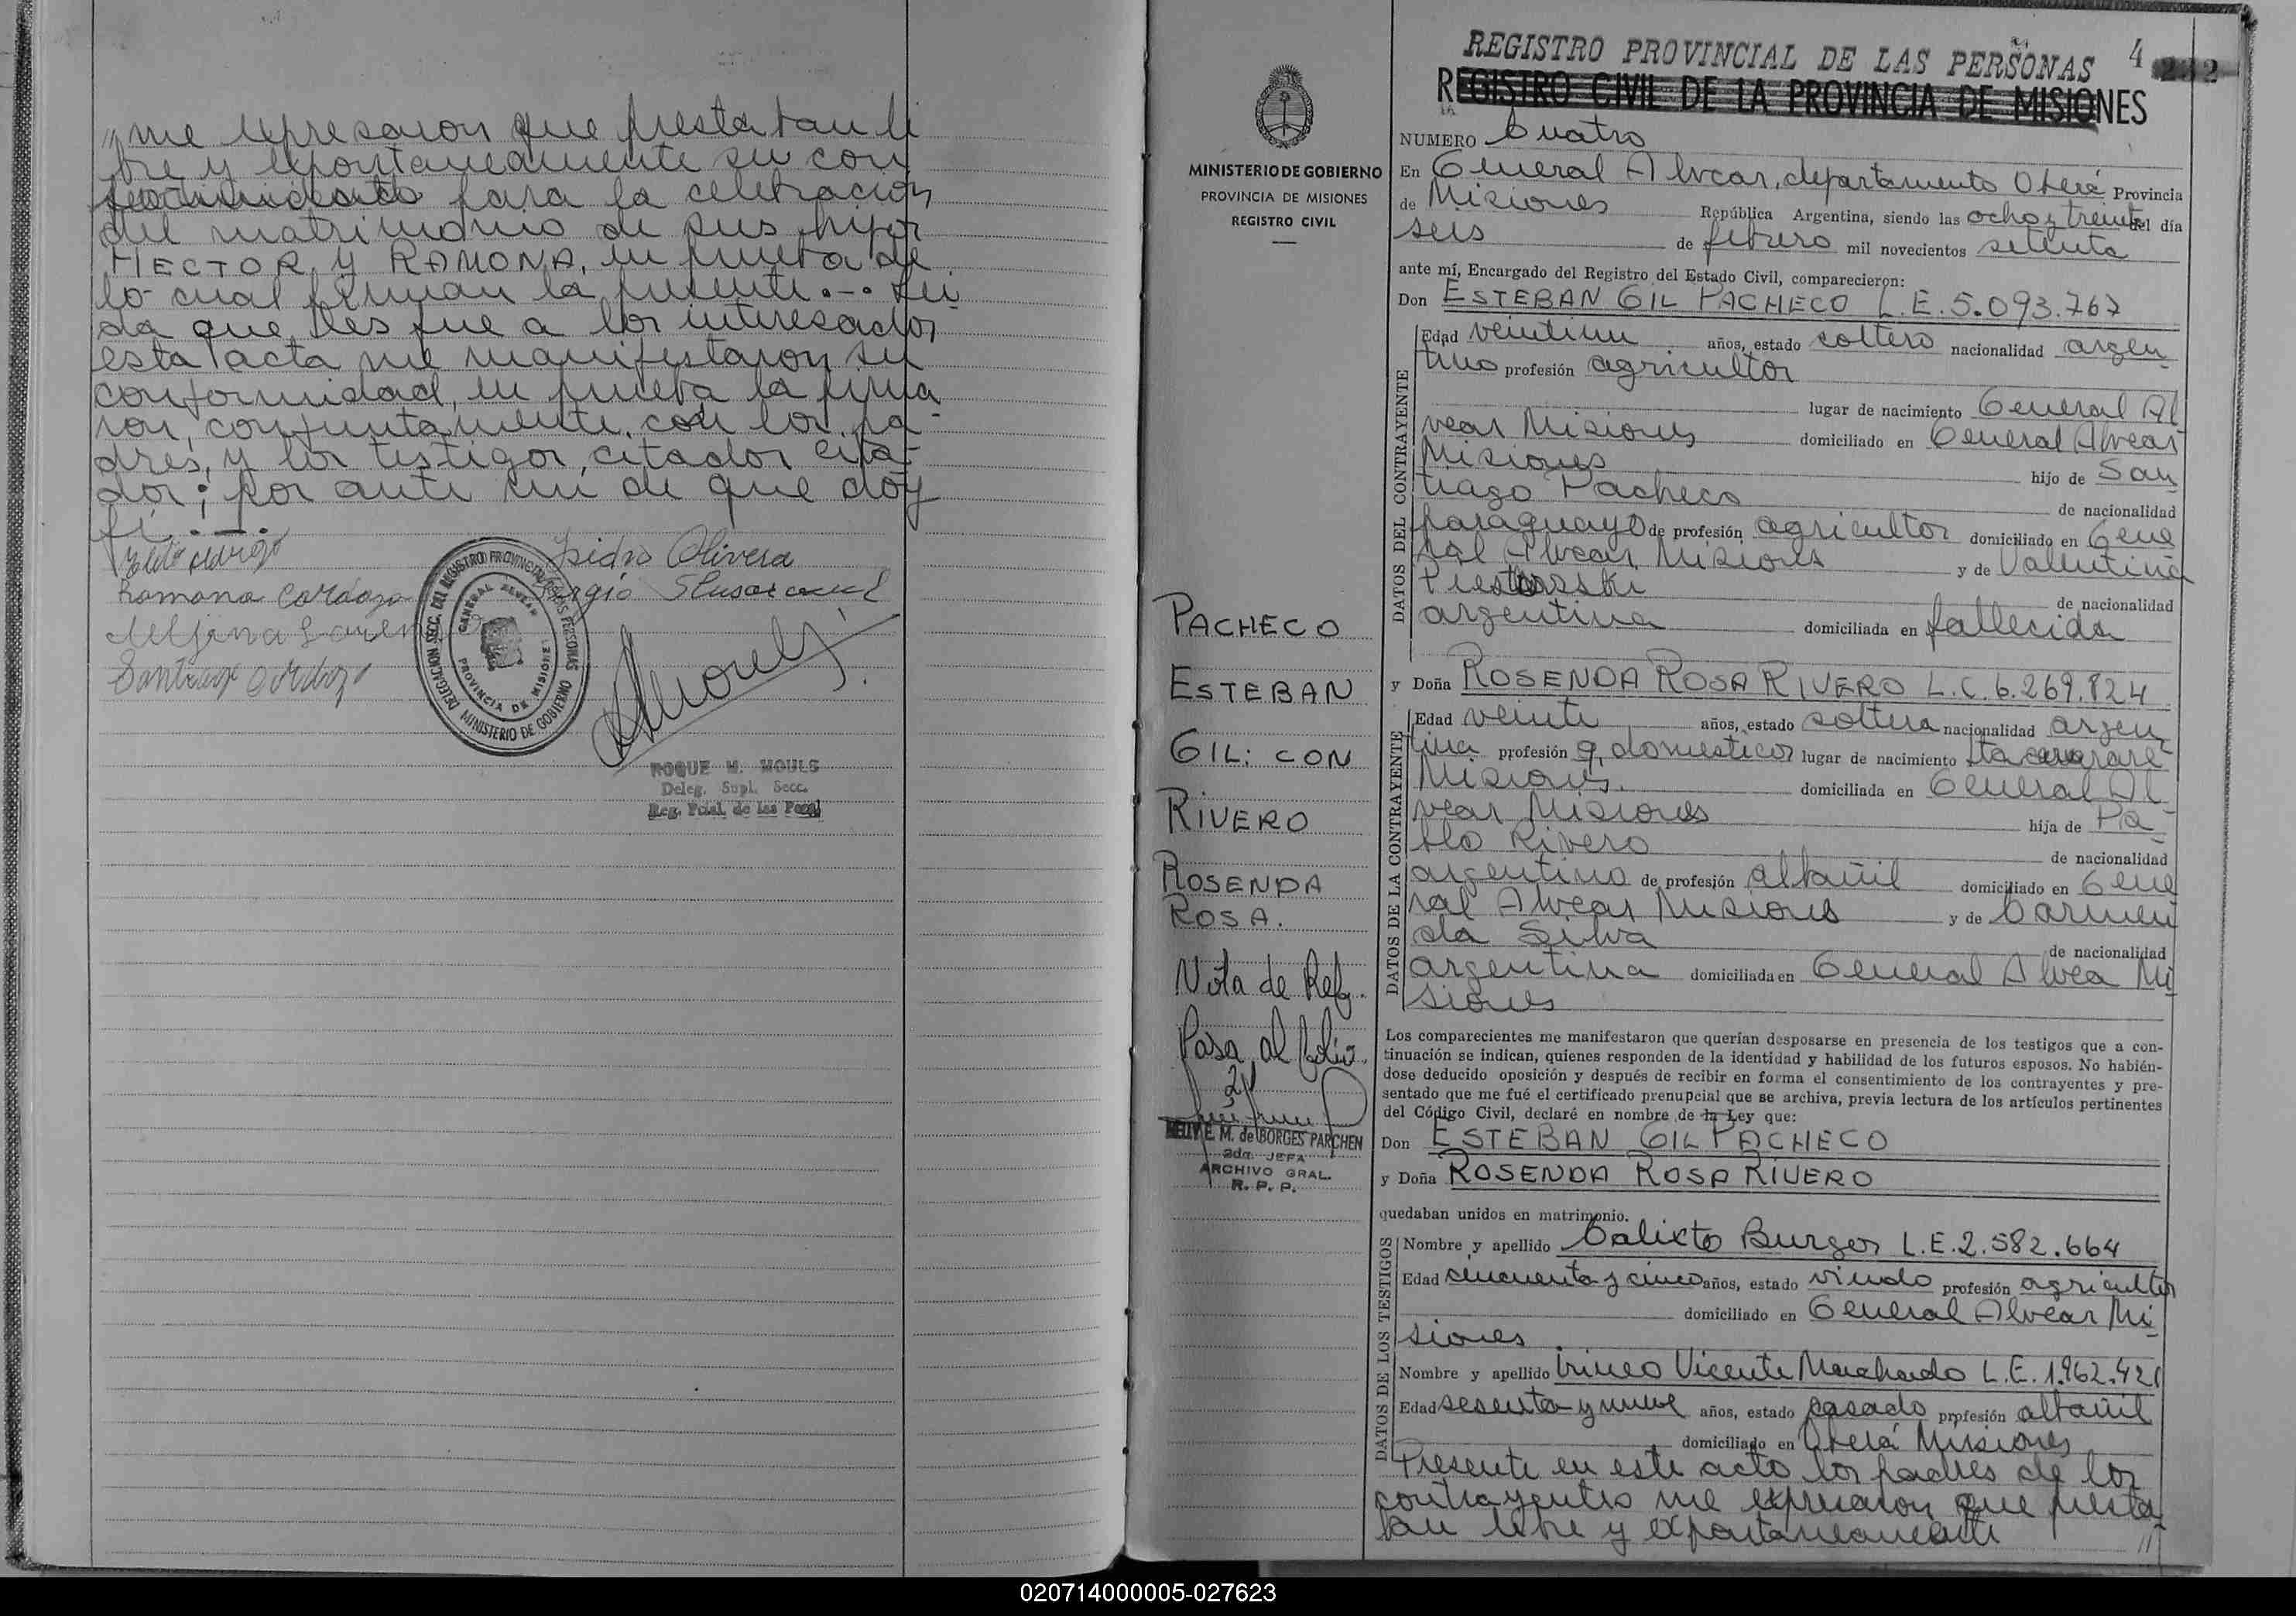 me expresaron que prestaban li
bre y expontaneamente su con
sentimiento para la celebración
del matrimonio de sus hijos
HECTOR, y RAMONA, en prueba de
lo cual firman la presente.-. Lei
da que les fue a los interesados
esta acta me manifestaron su
conformidad, en prueba la firma
ron, conjuntamente, con los pa-
dres, y los testigos, citados
dos; por ante mi de que doy
fé.-.
Isidro Olivera
Ramona Cardozo
DELEGACION SECC. DEL REGISTRO PROVINCIAL DE LAS PERSONAS
GENERAL ALVEAR
PROVINCIA DE MISIONES
MINISTERIO DE GOBIERNO
ROQUE M. MOULS
Deleg. Supl. Secc.
Reg. Pcial. de las Pers.
MINISTERIO DE GOBIERNO
PROVINCIA DE MISIONES
REGISTRO CIVIL
PACHECO
ESTEBAN
GIL: CON
RIVERO
ROSENDA
ROSA.
Nota de Ref.
Pasa al folio.
E. M. de BORGES PARCHEN
2da. JEFA
ARCHIVO GRAL.
R. P. P.
REGISTRO PROVINCIAL DE LAS PERSONAS 4 232
REGISTRO CIVIL DE LA PROVINCIA DE MISIONES
NUMERO Cuatro
En General Alvear, departamento Oberá Provincia
de Misiones República Argentina, siendo las ocho y treinta del día
seis de febrero mil novecientos setenta
ante mí, Encargado del Registro del Estado Civil, comparecieron:
Don ESTEBAN GIL PACHECO L.E. 5.093.767
DATOS DEL CONTRAYENTE
Edad veintiun años, estado soltero nacionalidad argen
tino profesión agricultor
lugar de nacimiento General Al
vear Misiones domiciliado en General Alvear
Misiones hijo de San
tiago Pacheco de nacionalidad
paraguayo de profesión agricultor domiciliado en Gene
ral Alvear Misiones y de Valentina
de nacionalidad
argentina domiciliada en fallecida
y Doña ROSENDA ROSA RIVERO L.C. 6.269.824
DATOS DE LA CONTRAYENTE
Edad veinte años, estado soltera nacionalidad argen
tina profesión q. domesticos lugar de nacimiento Itacaruaré
Misiones. domiciliada en General Al
vear Misiones hija de Pa
blo Rivero de nacionalidad
argentino de profesión albañil domiciliado en Gene
ral Alvear Misiones y de Carmen
da Silva de nacionalidad
argentina domiciliada en General Alvea Mi
siones
Los comparecientes me manifestaron que querían desposarse en presencia de los testigos que a con-
tinuación se indican, quienes responden de la identidad y habilidad de los futuros esposos. No habién-
dose deducido oposición y después de recibir en forma el consentimiento de los contrayentes y pre-
sentado que me fué el certificado prenupcial que se archiva, previa lectura de los artículos pertinentes
del Código Civil, declaré en nombre de la Ley que:
Don ESTEBAN GIL PACHECO
y Doña ROSENDA ROSA RIVERO
quedaban unidos en matrimonio.
DATOS DE LOS TESTIGOS
Nombre y apellido Calixto Burgos L.E. 2.582.664
Edad cincuenta y cinco años, estado viudo profesión agricultor
domiciliado en General Alvear Mi
siones.
Nombre y apellido Irineo Vicente Machado L.E. 1.962.421
Edad sesenta y nueve años, estado casado profesión albañil
domiciliado en Oberá Misiones
Presente en este acto los padres de los
contrayentes me expresaron que presta
ban libre y expontaneamente
020714000005-027623